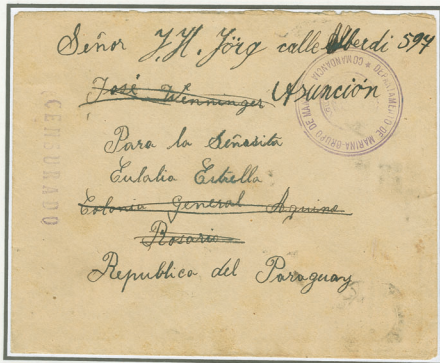 Señor J. H. Jörg calle Alberdi 597
José Wenninger Asunción
Para la Señorita
Eulalia Estrella
Colonia General Aquino
Rosario
Republica del Paraguay
CENSURADO
DEPARTAMENTO DE MARINA GRUPO DE
COMANDANCIA